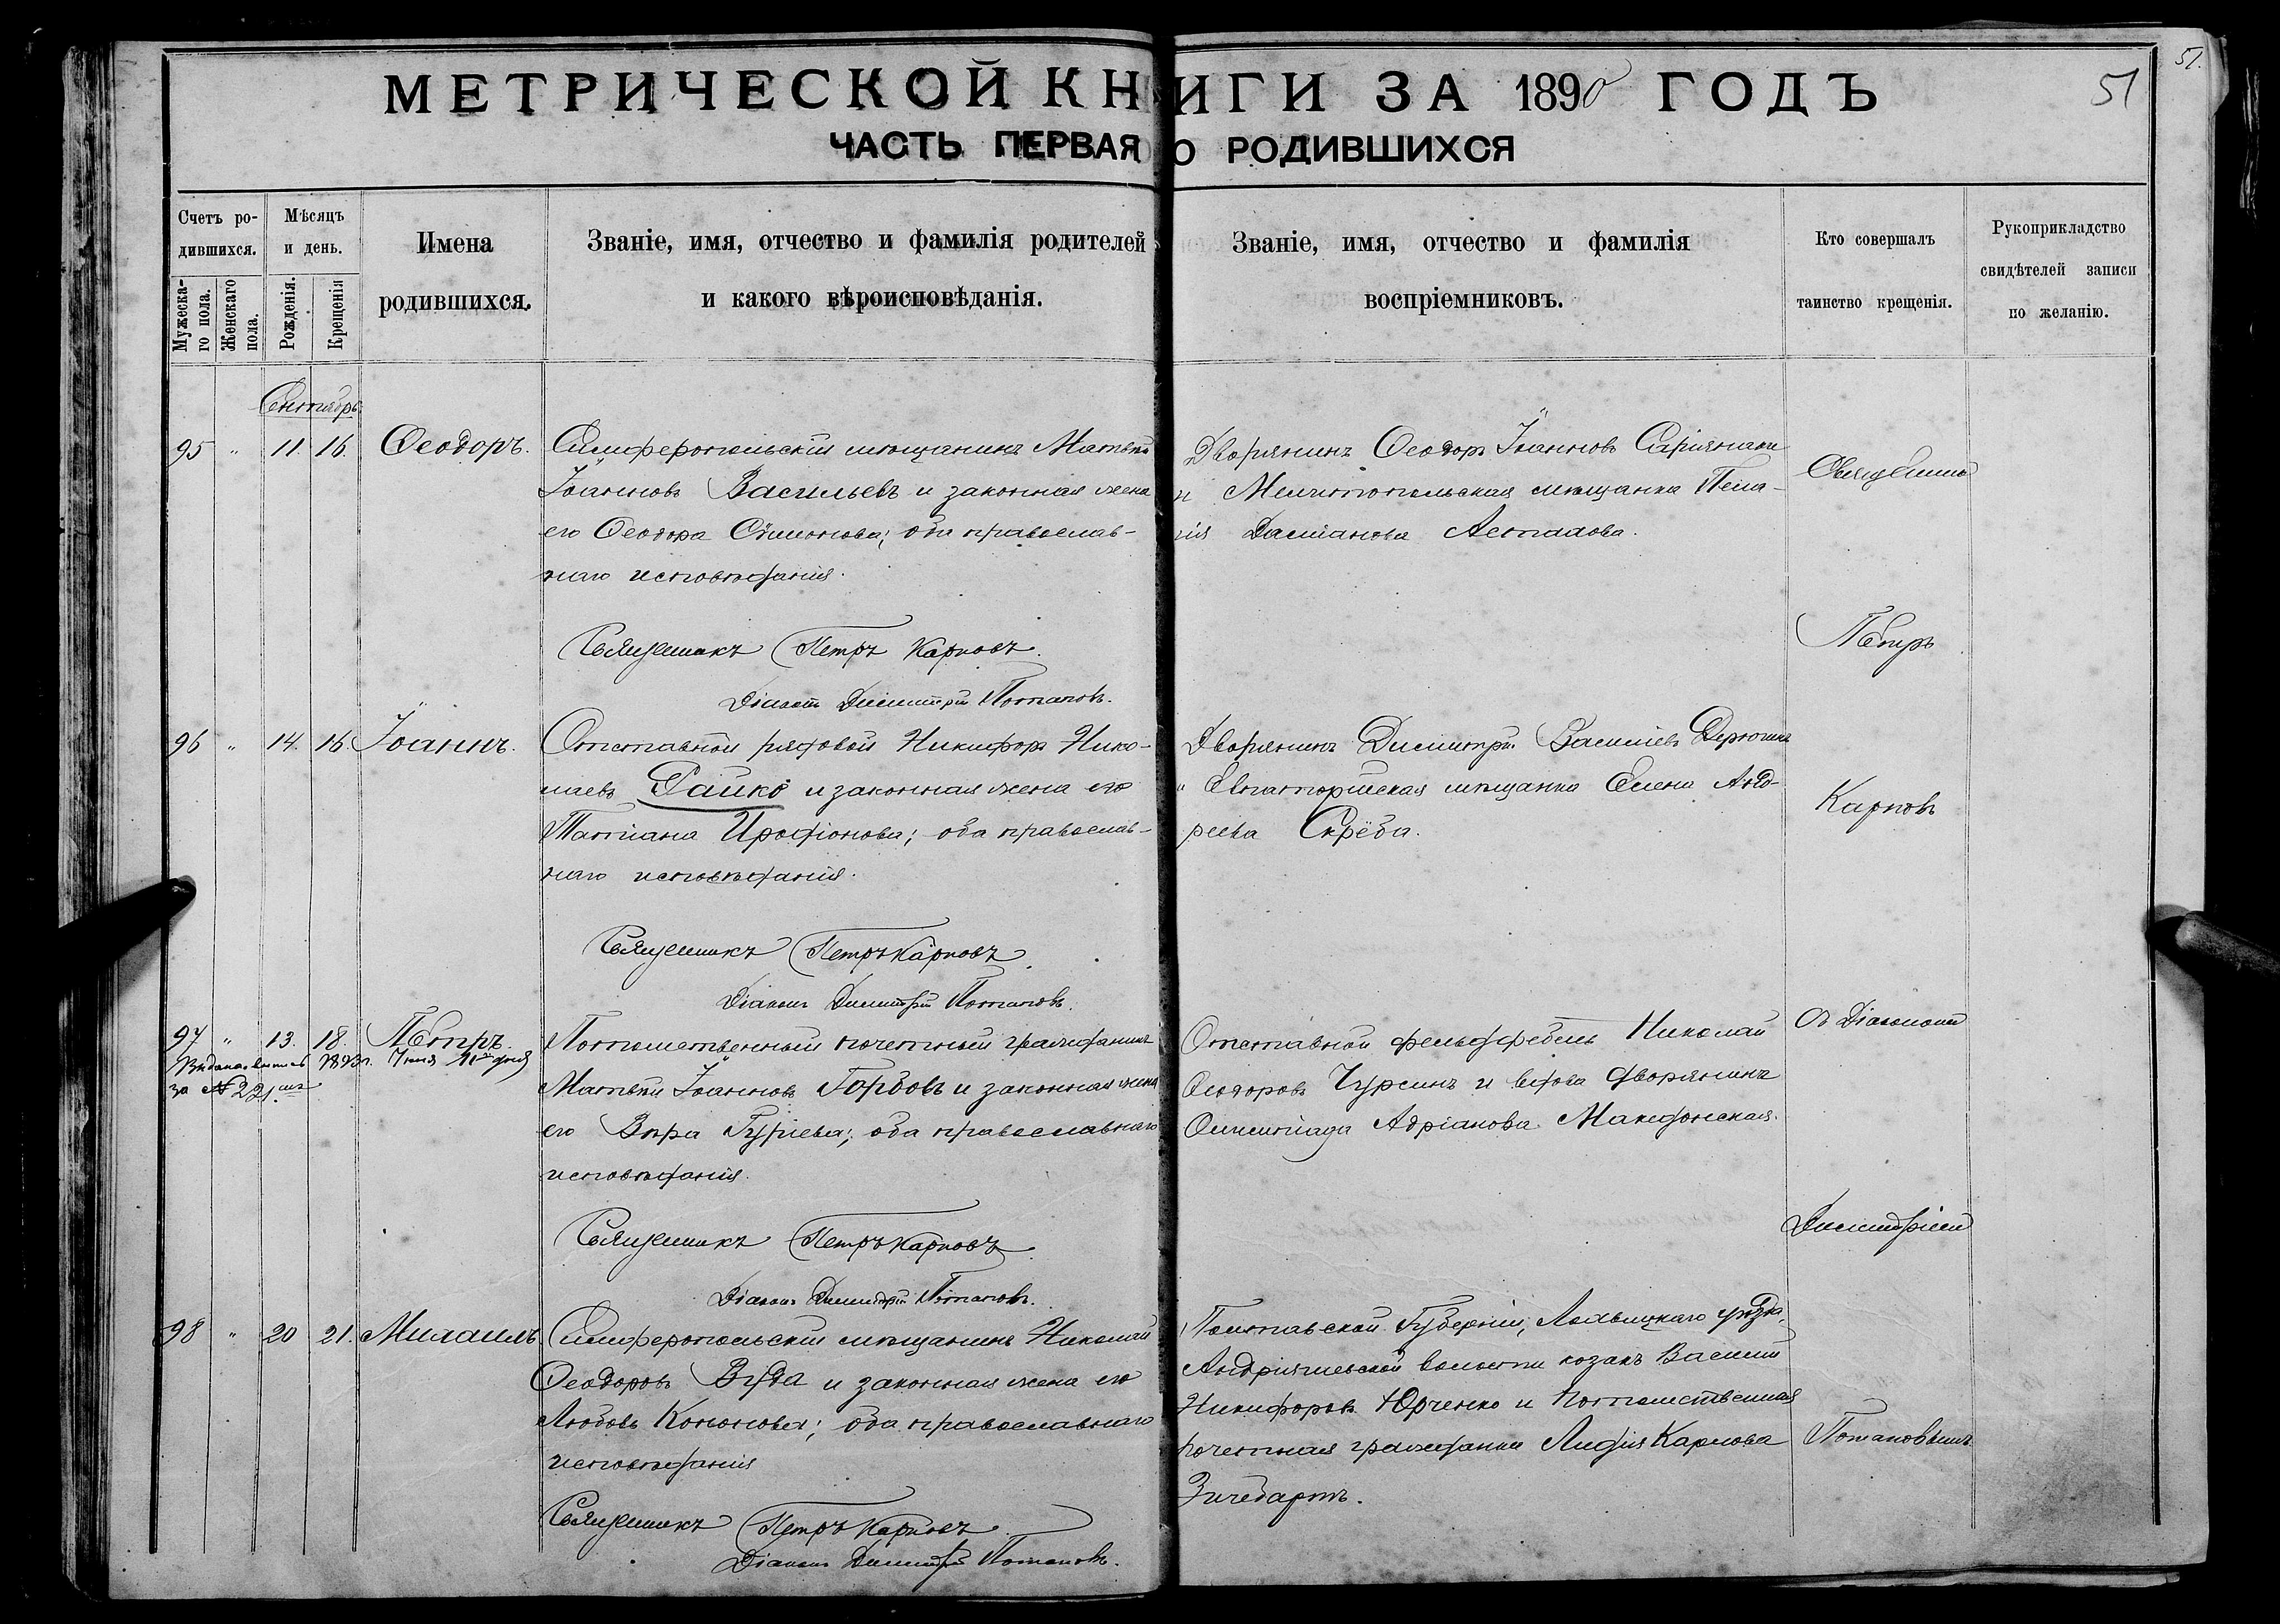 МЕТРИЧЕСКОЙ КНИГИ ЗА 1890 ГОДЪ
51
51.
ЧАСТЬ ПЕРВАЯ О РОДИВШИХСЯ
Счетъ ро-
дившихся.
Мужеска-
го пола.
Женскаго
пола.
Мѣсяцъ
и день.
Рожденія.
Крещенія
Имена
родившихся.
Званіе, имя, отчество и фамилія родителей
и какого вѣроисповѣданія.
Званіе, имя, отчество и фамилія
воспріемниковъ.
Кто совершалъ
таинство крещенія.
Рукоприкладство
свидѣтелей записи
по желанію.
Сентябрь
95 " 11. 16. Ѳеодоръ.
Симферопольскій мѣщанинъ Матвѣй
Іоанновъ Васильевъ и законная жена
его Ѳеодора Симонова; оба православ-
наго исповѣданія.
Дворянинъ Ѳеодоръ Іоанновъ
и Мелитопольская мѣщанка Пела-
гія Даміанова Астахова.
Священникъ Петръ Карповъ.
Діаконъ Димитрій Потаповъ.
96 " 14. 16. Іоаннъ.
Отставной рядовой Никифоръ Нико-
лаевъ Райко и законная жена его
Татіана Иродіонова; оба православ-
наго исповѣданія.
Дворянинъ Димитрій Василіевъ Дерюгинъ
и Евпаторійская мѣщанка Елена Анд-
реева Скрёба.
Священникъ Петръ Карповъ
Діаконъ Димитрій Потаповъ.
97 " 13. 18. Петръ.
Выдана выпись 1893 г. Іюня 11го дня
за № 221.
Потомственный почетный гражданинъ
Матвѣй Іоанновъ Горбовъ и законная жена
его Вѣра Гуріева; оба православнаго
исповѣданія.
Отставной фельдфебель Николай
Ѳеодоровъ Чурсинъ и вдова дворянина
Олимпіада Адріанова Македонская.
Священникъ Петръ Карповъ
Діаконъ Димитрій Потаповъ.
98 " 20 21. Михаилъ.
Симферопольскій мѣщанинъ Николай
Ѳеодоровъ Вуда и законная жена его
Любовь Кононова; оба православнаго
исповѣданія
Полтавской Губерніи, Лохвицкаго уѣзда,
Андріяшевской волости козакъ Василій
Никифоровъ Юрченко и потомственная
почетная гражданка Лидія Карлова
Священникъ Петръ Карповъ
Діаконъ Димитрій Потаповъ.
Священникъ
Петръ
Карповъ
съ Діакономъ
Димитріемъ
Потаповымъ